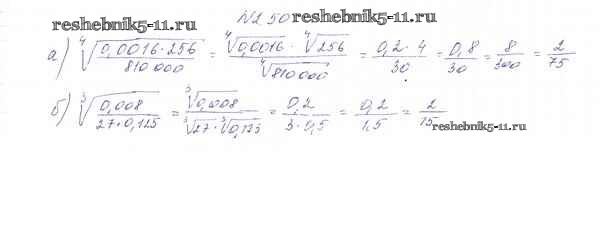 N2 50
reshebnik5-11.ru reshebnik5-11.ru
а) ∜(0,0016·256 / 810 000) = ∜0,0016 · ∜256 / ∜810 000 = 0,2·4 / 30 = 0,8 / 30 = 8 / 300 = 2 / 75
б) ∛(0,008 / 27·0,125) = ∛0,008 / ∛27·∛0,125 = 0,2 / 3·0,5 = 0,2 / 1,5 = 2 / 15
reshebnik5-11.ru